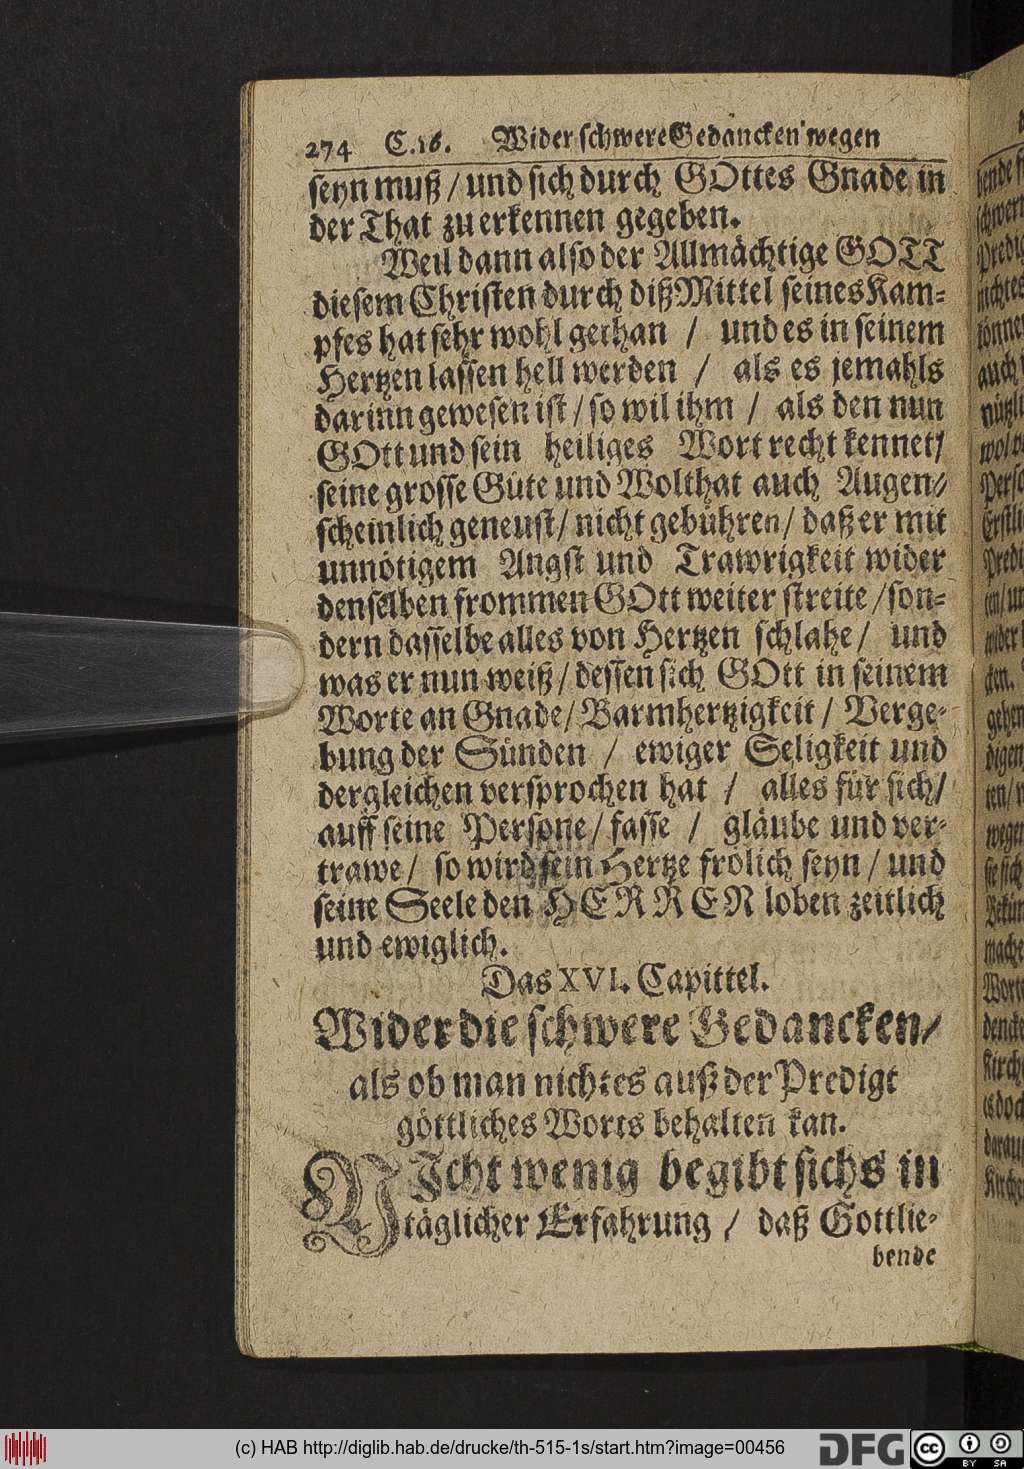 274 C.16. Wider schwere Gedancken wegen
seyn muß / und sich durch GOttes Gnade in
der That zu erkennen gegeben.
Weil dann also der Allmächtige GOTT
diesem Christen durch diß Mittel seines Kam-
pfes hat sehr wohl gethan / und es in seinem
Hertzen lassen hell werden / als es jemahls
darinn gewesen ist / so wil ihm / als den nun
GOtt und sein heiliges Wort recht kennet /
seine grosse Güte und Wolthat auch Augen-
scheinlich geneust / nicht gebühren / daß er mit
unnötigem Angst und Trawrigkeit wider
denselben frommen GOtt weiter streite / son-
dern dasselbe alles von Hertzen schlahe / und
was er nun weiß / dessen sich GOtt in seinem
Worte an Gnade / Barmhertzigkeit / Verge-
bung der Sünden / ewiger Seligkeit und
dergleichen versprochen hat / alles für sich /
auff seine Persone / fasse / gläube und ver-
trawe / so wird sein Hertze frölich seyn / und
seine Seele den HERREN loben zeitlich
und ewiglich.
Das XVI. Capittel.
Wider die schwere Gedancken /
als ob man nichtes auß der Predigt
göttliches Worts behalten kan.
NIcht wenig begibt sichs in
täglicher Erfahrung / daß Gottlie-
bende
(c) HAB http://diglib.hab.de/drucke/th-515-1s/start.htm?image=00456
DFG
cc BY SA